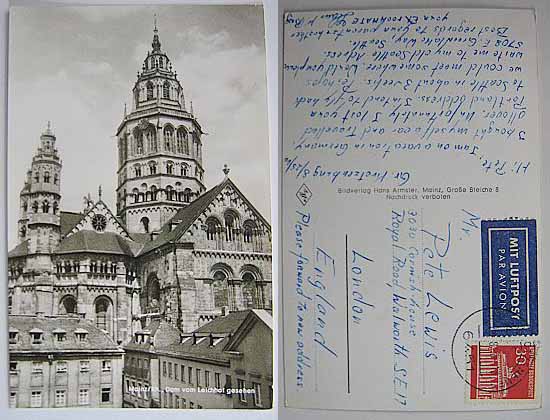 Mainz/Rh., Dom vom Leichhof gesehen
Gr. Kretzenburg
Hi Pete,
I am on a vacation in Germany,
I bought myself a car and travelled
all over. Unfortunately I lost your
Portland address. I intend to fly back
to Seattle in about 3 weeks. Perhaps
we could meet somewhere. Would you please
write me to my old Seattle Adress:
5708 E. Greenlake Way, Seattle.
Best regards to you and your
your EX roommate
Bildverlag Hans Armster, Mainz, Große Bleiche 8
Nachdruck verboten
Agfa
Mr.
Pete Lewis
3030 Pembroke House
Royal Road, Walworth S.E.17
London
England
Please forward to new address
MIT LUFTPOST
PAR AVION
30